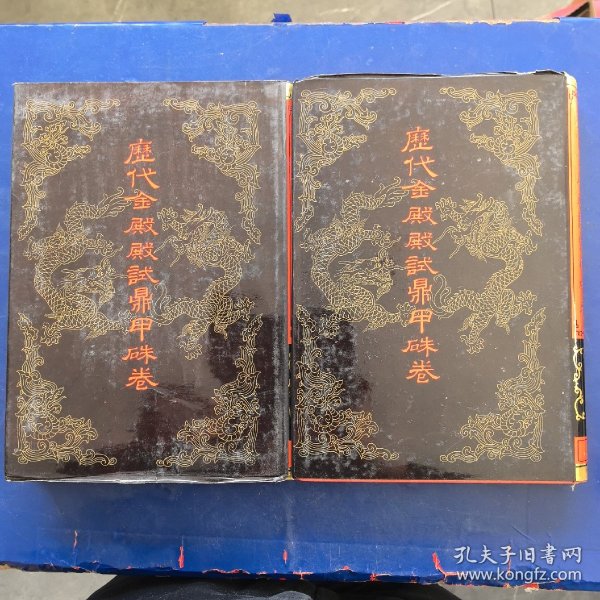 歷代金殿殿試鼎甲硃卷
歷代金殿殿試鼎甲硃卷
孔夫子旧书网
www.kongfz.com